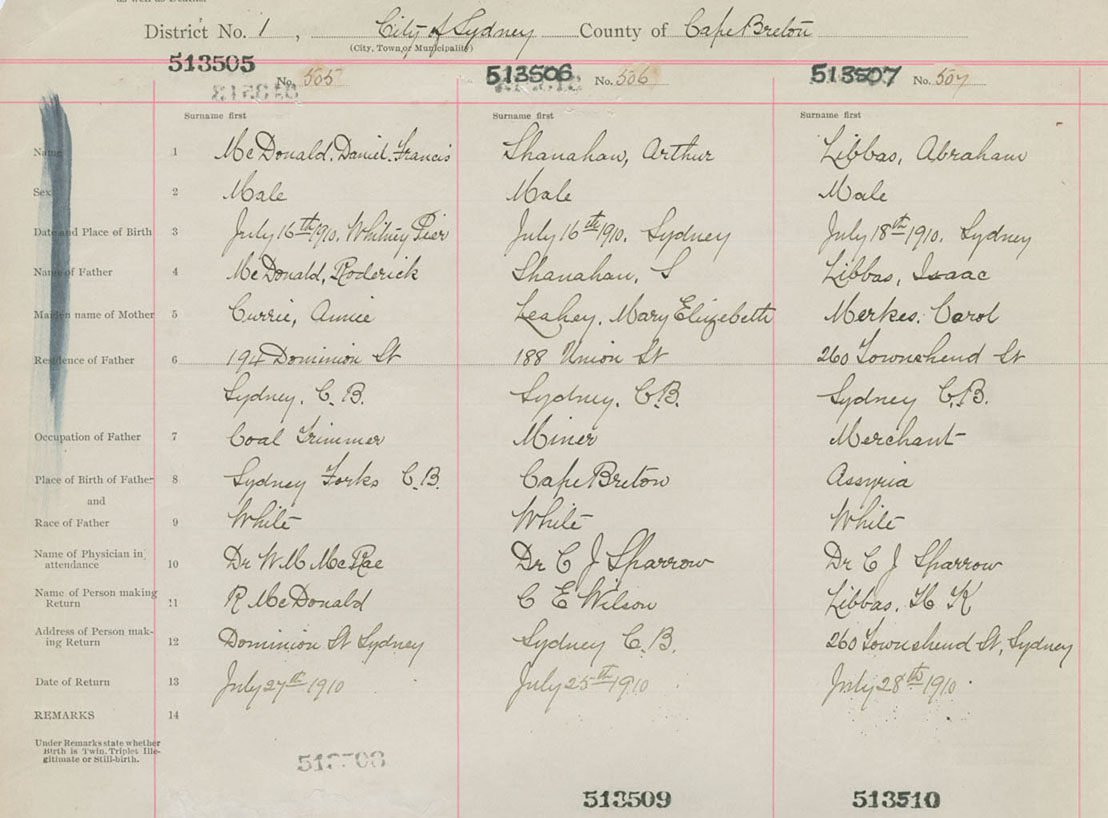 District No. 1, City of Sydney County of Cape Breton
(City, Town, or Municipality)
513505 No. 505 513506 No. 506 513507 No. 507
Surname first Surname first Surname first
Name 1 McDonald, Daniel Francis Shanahan, Arthur Libbas, Abraham
Sex 2 Male Male Male
Date and Place of Birth 3 July 16th 1910. Whitney Pier July 16th 1910. Sydney July 18th 1910. Sydney
Name of Father 4 McDonald, Roderick Shanahan, S Libbas, Isaac
Maiden name of Mother 5 Currie, Annie Leahey, Mary Elizebeth Merkes, Carol
Residence of Father 6 194 Dominion St 188 Union St 260 Townshend St
Sydney, C. B. Sydney. C.B. Sydney C.B.
Occupation of Father 7 Coal Trimmer Miner Merchant
Place of Birth of Father 8 Sydney Forks C.B. Cape Breton Assyria
and
Race of Father 9 White White White
Name of Physician in attendance 10 Dr W M McRae Dr C J Sparrow Dr C J Sparrow
Name of Person making Return 11 R McDonald C E Wilson Libbas, H K
Address of Person mak-ing Return 12 Dominion St Sydney Sydney C.B. 260 Townshend St, Sydney
Date of Return 13 July 27th 1910 July 25th 1910 July 28th 1910
REMARKS 14
Under Remarks state whether
Birth is Twin, Triplet Ille-
gitimate or Still-birth.
513509 513510